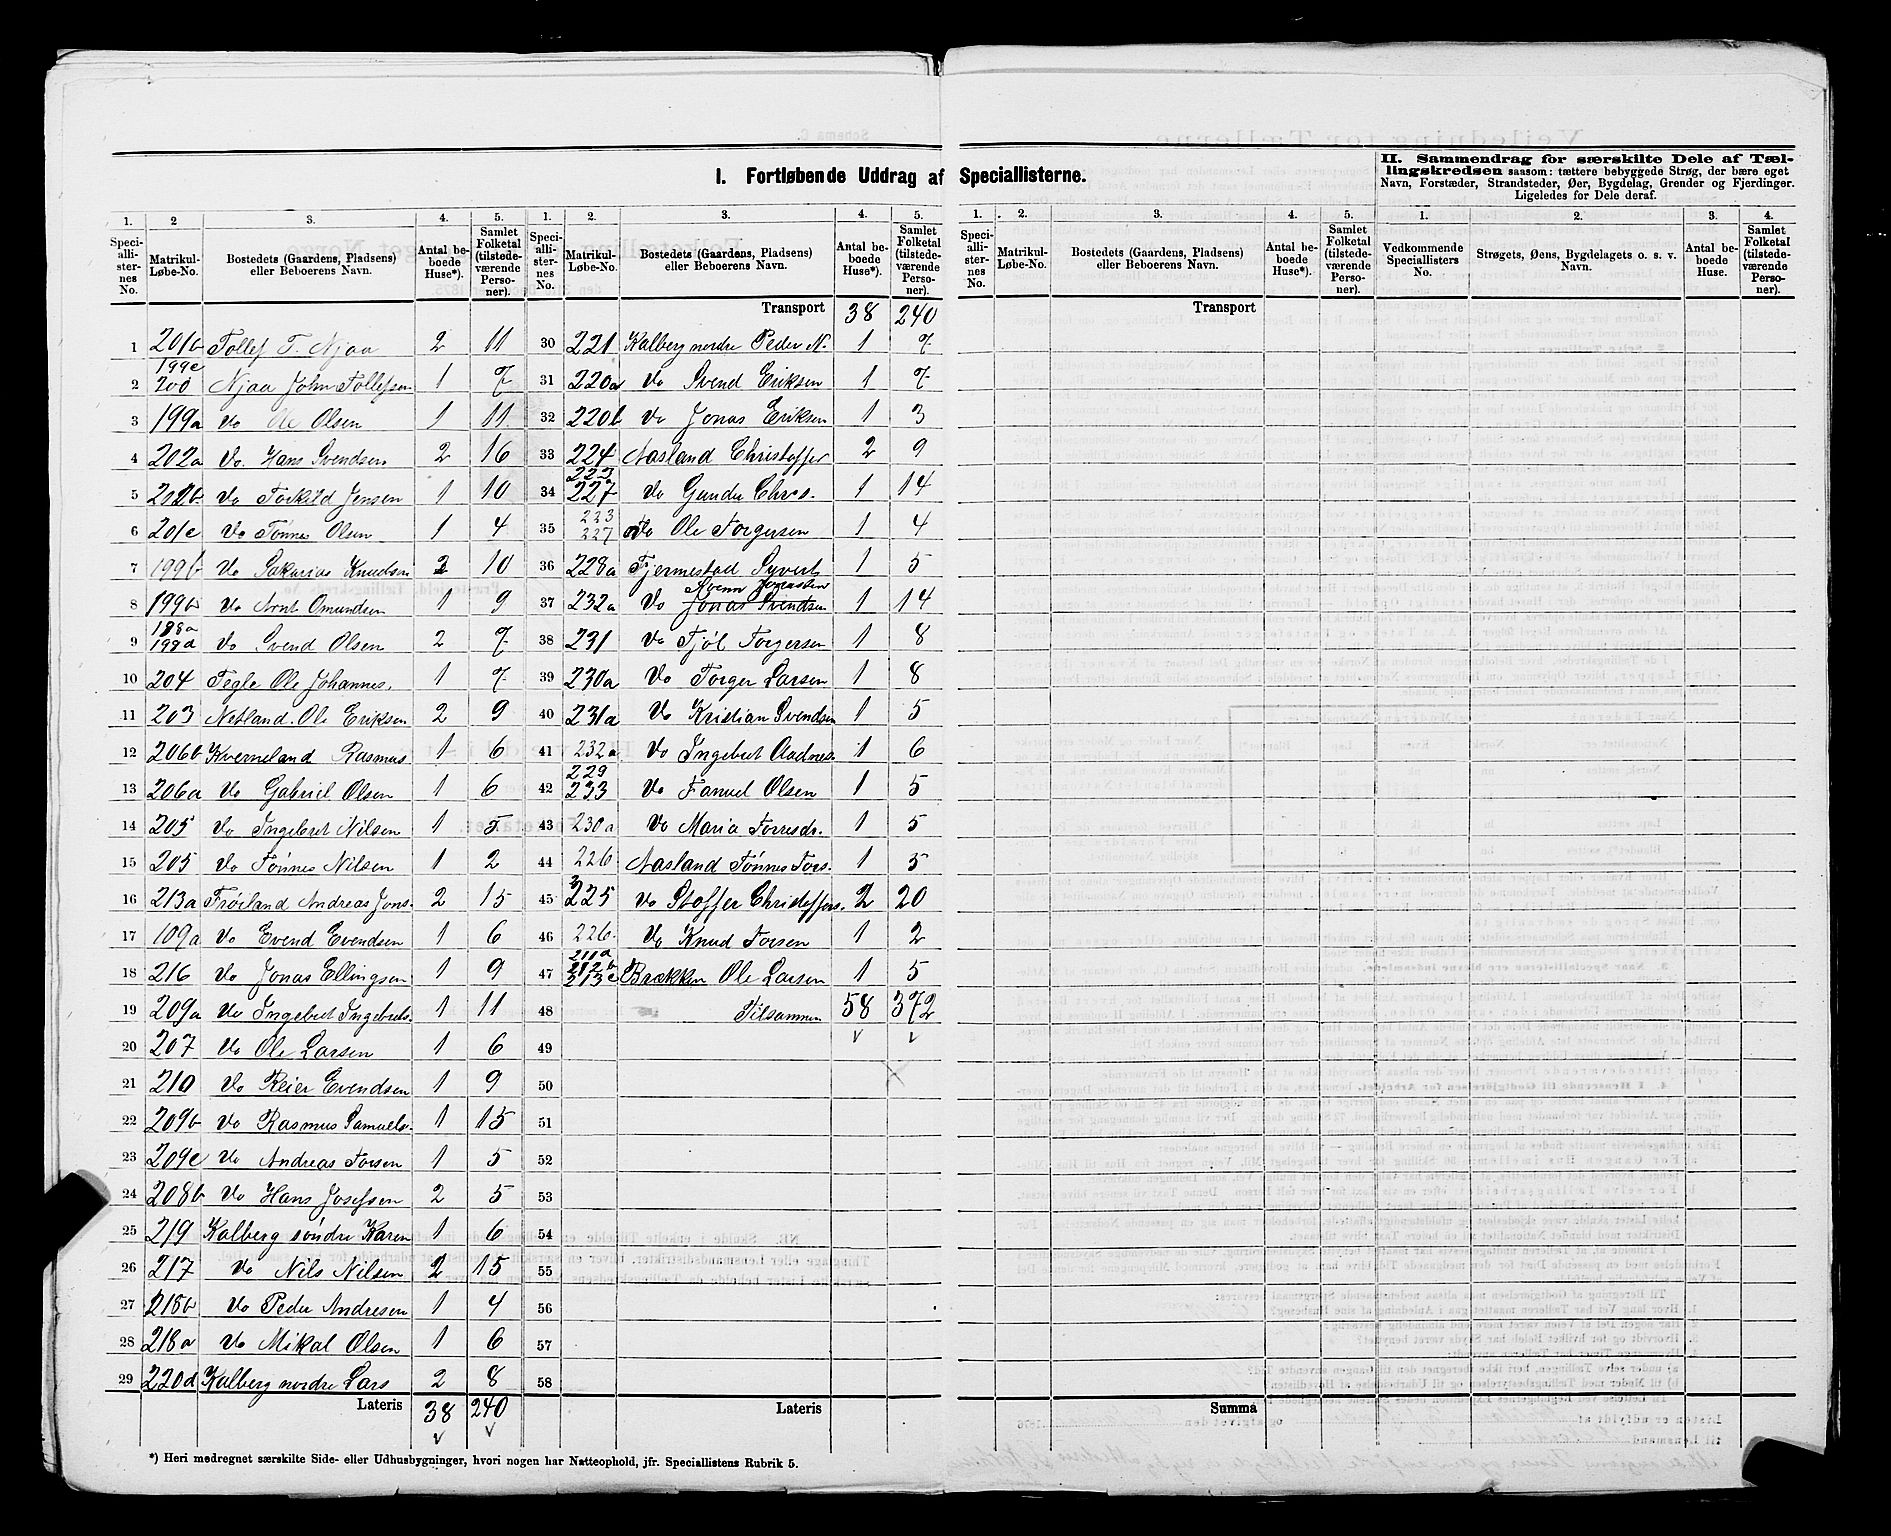 I. Fortløbende Uddrag af Speciallisterne.
II. Sammendrag for særskilte Dele af Tællingskredsen saasom: tættere bebyggede Strøg, der bære eget Navn, Forstæder, Strandsteder, Øer, Bygdelag, Grender og Fjerdinger. Ligeledes for Dele deraf.
1. 2 3. 4. 5. 1. 2. 3. 4. 5. 1. 2. 3. 4. 5. 1. 2. 3. 4.
Speciallisternes No. Matrikul-Løbe-No. Bostedets (Gaardens, Pladsens) eller Beboerens Navn. Antal beboede Huse*). Samlet Folketal (tilstedeværende Personer).
Speciallisternes No. Matrikul-Løbe-No. Bostedets (Gaardens, Pladsens) eller Beboerens Navn. Antal beboede Huse*). Samlet Folketal (tilstedeværende Personer).
Speciallisternes No. Matrikul-Løbe-No. Bostedets (Gaardens, Pladsens) eller Beboerens Navn. Antal beboede Huse*). Samlet Folketal (tilstedeværende Personer).
Vedkommende Speciallisters No. Strøgets, Øens, Bygdelagets o. s. v. Navn. Antal beboede Huse. Samlet Folketal (tilstedeværende Personer).
1 201b Tollef T. Njaa 2 11
2 199c 200 Njaa John Tollefsen 1 7
3 199a Do Ole Olsen 1 11
4 202a Do. Hans Svendsen 2 16
5 202b Do Torkild Jensen 1 10
6 201c Do Tønnes Olsen 1 4
7 199b Do Sakarias Knudsen 2 10
8 199b Do Arnt Omundsen 1 9
9 198a 199d Do Svend Olsen 2 7
10 204 Tegle Ole Johannes. 1 7
11 203 Netland. Ole Eriksen 2 9
12 206b Kverneland Rasmus 1 6
13 206a Do Gabriel Olsen 1 6
14 205 Do Ingebret Nilsen 1 5
15 205 Do Tønnes Nilsen 1 2
16 213a Frøiland Andreas Jons. 2 15
17 109a Do Evend Evendsen 1 6
18 216 Do Jonas Ellingsen 1 9
19 209a Do Ingebret Ingebrets. 1 11
20 207 Do Ole Larsen 1 6
21 210 Do Reier Evendsen 1 9
22 209b Do Rasmus Samuels. 1 15
23 209c Do Andreas Torsen 1 5
24 208b Do Hans Josefsen 2 5
25 219 Kalberg søndre Karen 1 6
26 217 Do Nils Nilsen 2 15
27 218b Do Peder Andresen 1 4
28 218a Do Mikal Olsen 1 6
29 220d Kalberg nordre Lars 2 8
Lateris 38 240
Transport 38 240
30 221 Kalberg nordre Peder N. 1 7
31 220a Do Svend Eriksen 1 7
32 220b Do Jonas Eriksen 1 3
33 224 Aasland Christoffer 2 9
34 222 227 Do Gunder Chris. 1 14
35 223 227 Do Ole Torgersen 1 4
36 228a Fjermestad Syvert 1 5
37 232a Do Jonas Svendsen 1 14
38 231 Do Tjøl Torgersen 1 8
39 230a Do Torger Larsen 1 8
40 231a Do Kristian Svendsen 1 5
41 232a Do Ingebret Aadnes. 1 6
42 229 233 Do Fanuel Olsen 1 5
43 230a Do Maria Torresdr. 1 5
44 226 Aasland Tønnes Tors. 1 5
45 225 Do Stoffer Christoffers. 2 20
46 226 Do Knud Torsen 1 2
47 211a 212b 213c Brækken Ole Larsen 1 5
48 Tilsammen 58 372
49
50
51
52
53
54
55
56
57
58
Lateris
Transport
Summa
*) Heri medregnet særskilte Side- eller Udhusbygninger, hvori nogen har Natteophold, jfr. Speciallistens Rubrik 5.